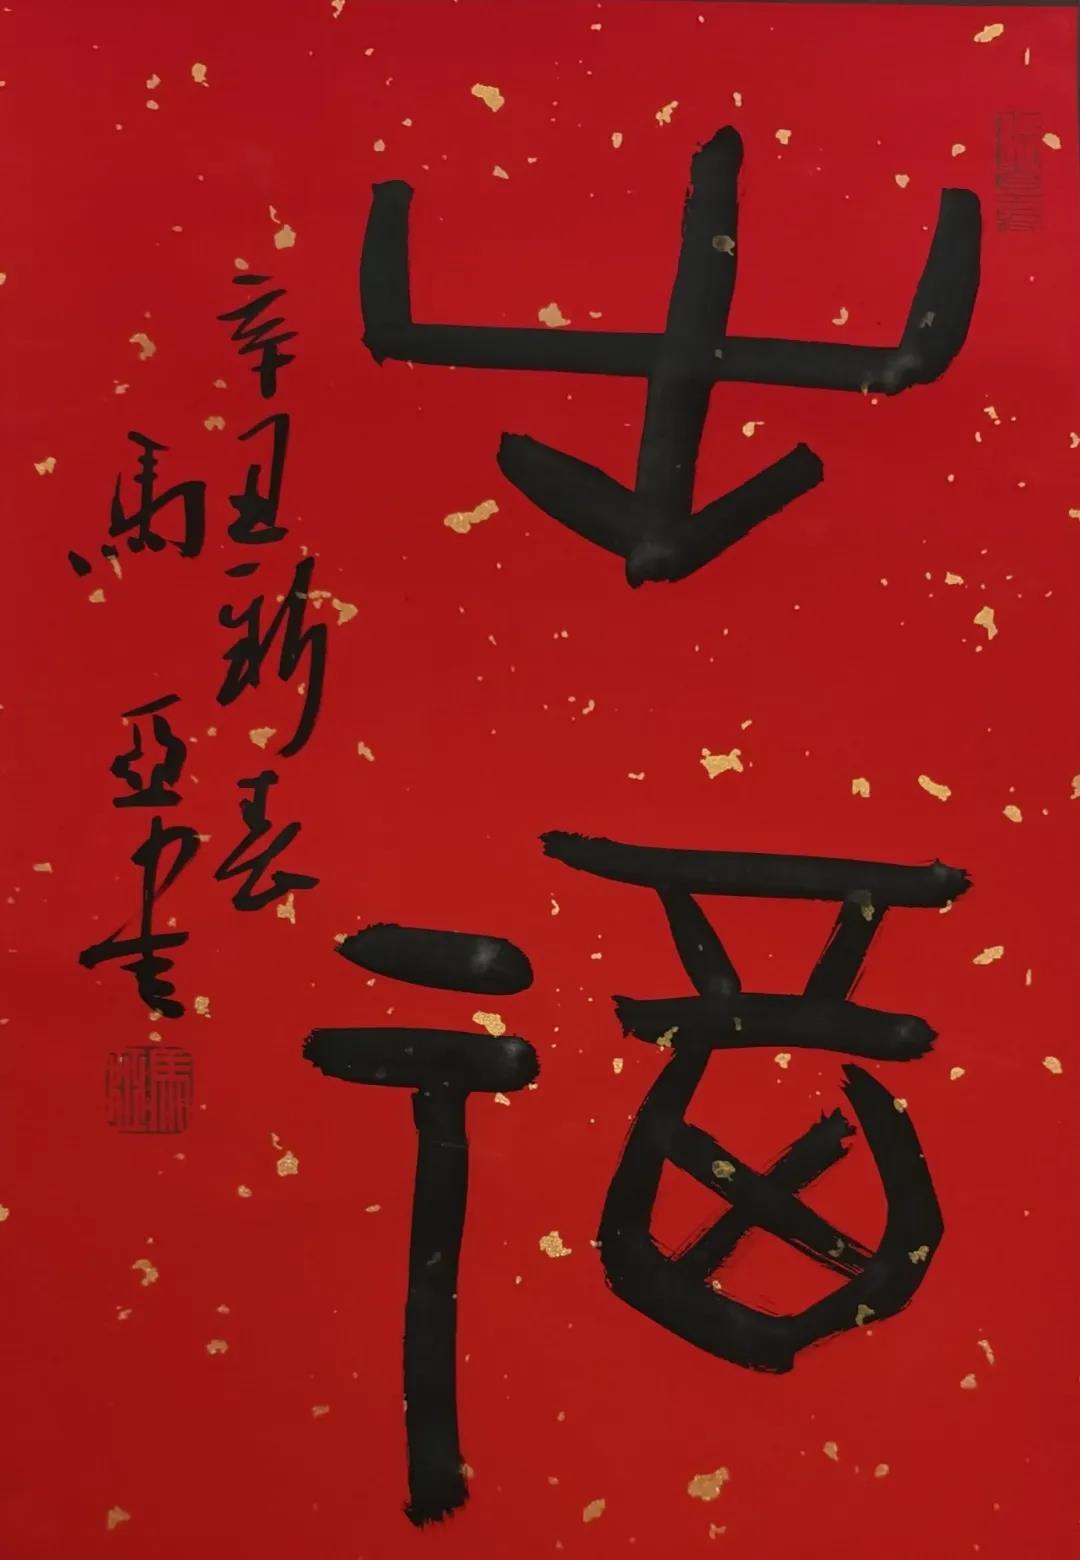 牛福
辛丑新春
馬亞中書